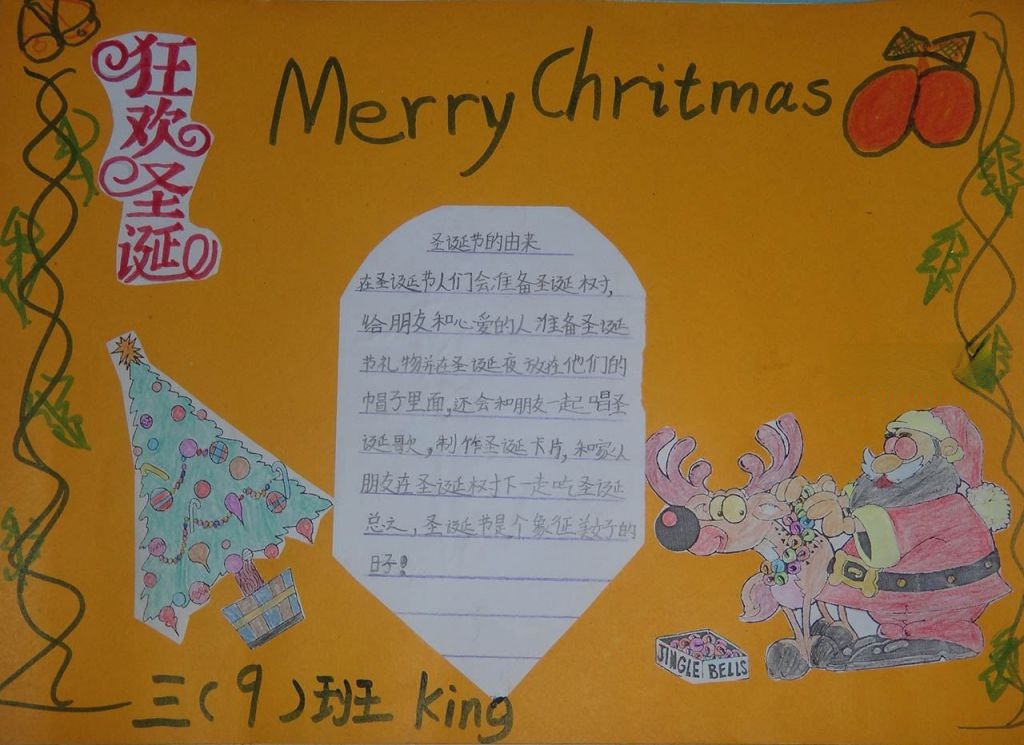 狂欢圣诞
Merry Chritmas
圣诞节的由来
在圣诞节人们会准备圣诞树,
给朋友和心爱的人准备圣诞
节礼物并在圣诞夜放在他们的
帽子里面,还会和朋友一起唱圣
诞歌,制作圣诞卡片,和家人
朋友在圣诞树下一起吃圣诞
总之,圣诞节是个象征美好的
日子!
JINGLE BELLS
三(9)班 king